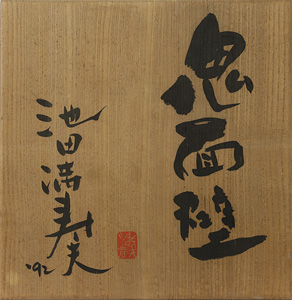 鬼面型
池田満寿夫
'92